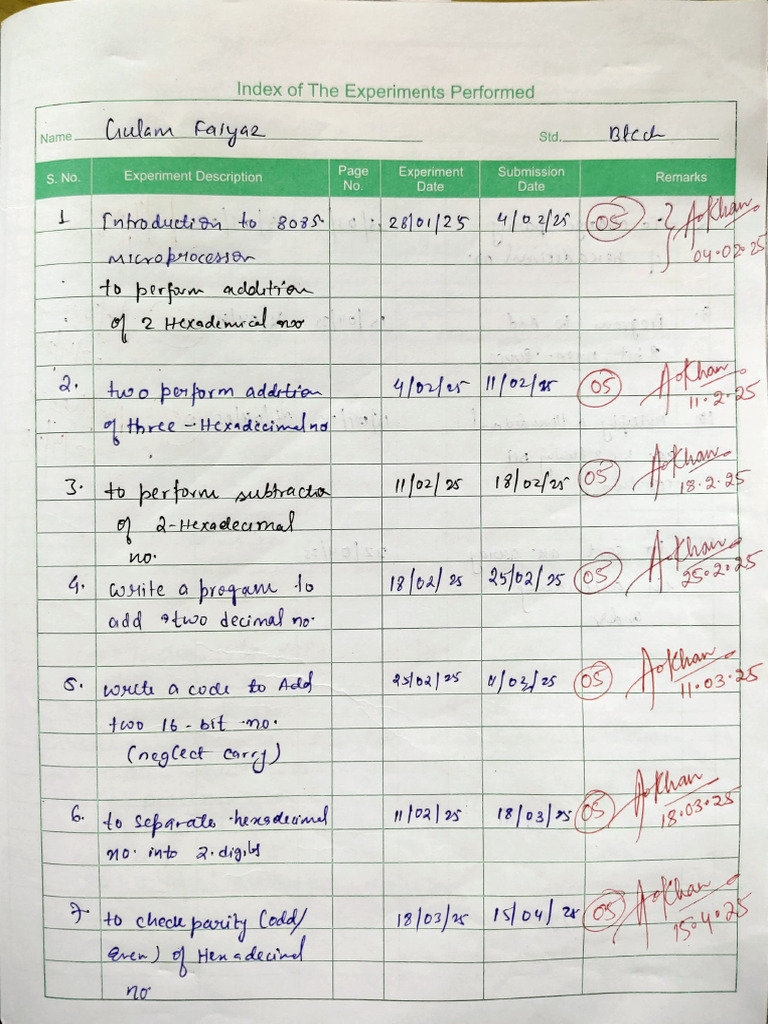 Index of The Experiments Performed
Name Gulam Faiyaz Std. Btech
S. No. Experiment Description Page No. Experiment Date Submission Date Remarks
1 Introduction to 8085 28/01/25 4/02/25 05 AoKhan
microprocessor 04.02.25
to perform addition
of 2 Hexademical no
2. two perform addition 4/02/25 11/02/25 05 AoKhan
of three - Hexadecimal no 11.2.25
3. to perform subtraction 11/02/25 18/02/25 05 AoKhan
of 2-Hexadecimal 18.2.25
no.
4. write a program to 18/02/25 25/02/25 05 AoKhan
add two decimal no. 25.2.25
5. write a code to Add 25/02/25 /03/25 05 AoKhan
two 16-bit no. 11.03.25
(neglect carry)
6. to separate hexadecimal 11/02/25 18/03/25 05 AoKhan
no. into 2 digits 18.03.25
7. to check parity (odd/ 18/03/25 15/04/25 05 AoKhan
even) of Hexadecimal 15.4.25
no